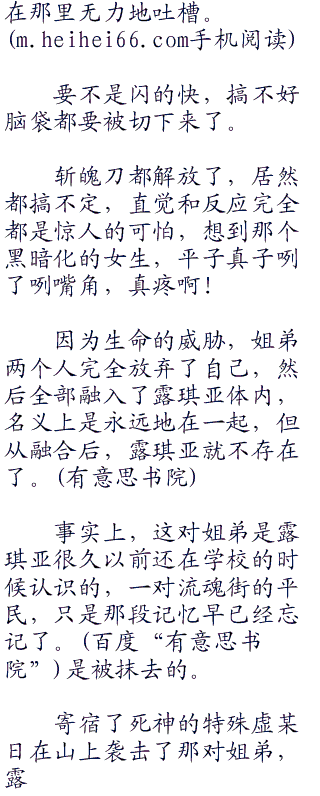 在那里无力地吐槽。
(m.heihei66.com手机阅读)
要不是闪的快，搞不好
脑袋都要被切下来了。
斩魄刀都解放了，居然
都搞不定，直觉和反应完全
都是惊人的可怕，想到那个
黑暗化的女生，平子真子咧
了咧嘴角，真疼啊！
因为生命的威胁，姐弟
两个人完全放弃了自己，然
后全部融入了露琪亚体内，
名义上是永远地在一起，但
从融合后，露琪亚就不存在
了。(有意思书院)
事实上，这对姐弟是露
琪亚很久以前还在学校的时
候认识的，一对流魂街的平
民，只是那段记忆早已经忘
记了。(百度“有意思书
院”)是被抹去的。
寄宿了死神的特殊虚某
日在山上袭击了那对姐弟，
露